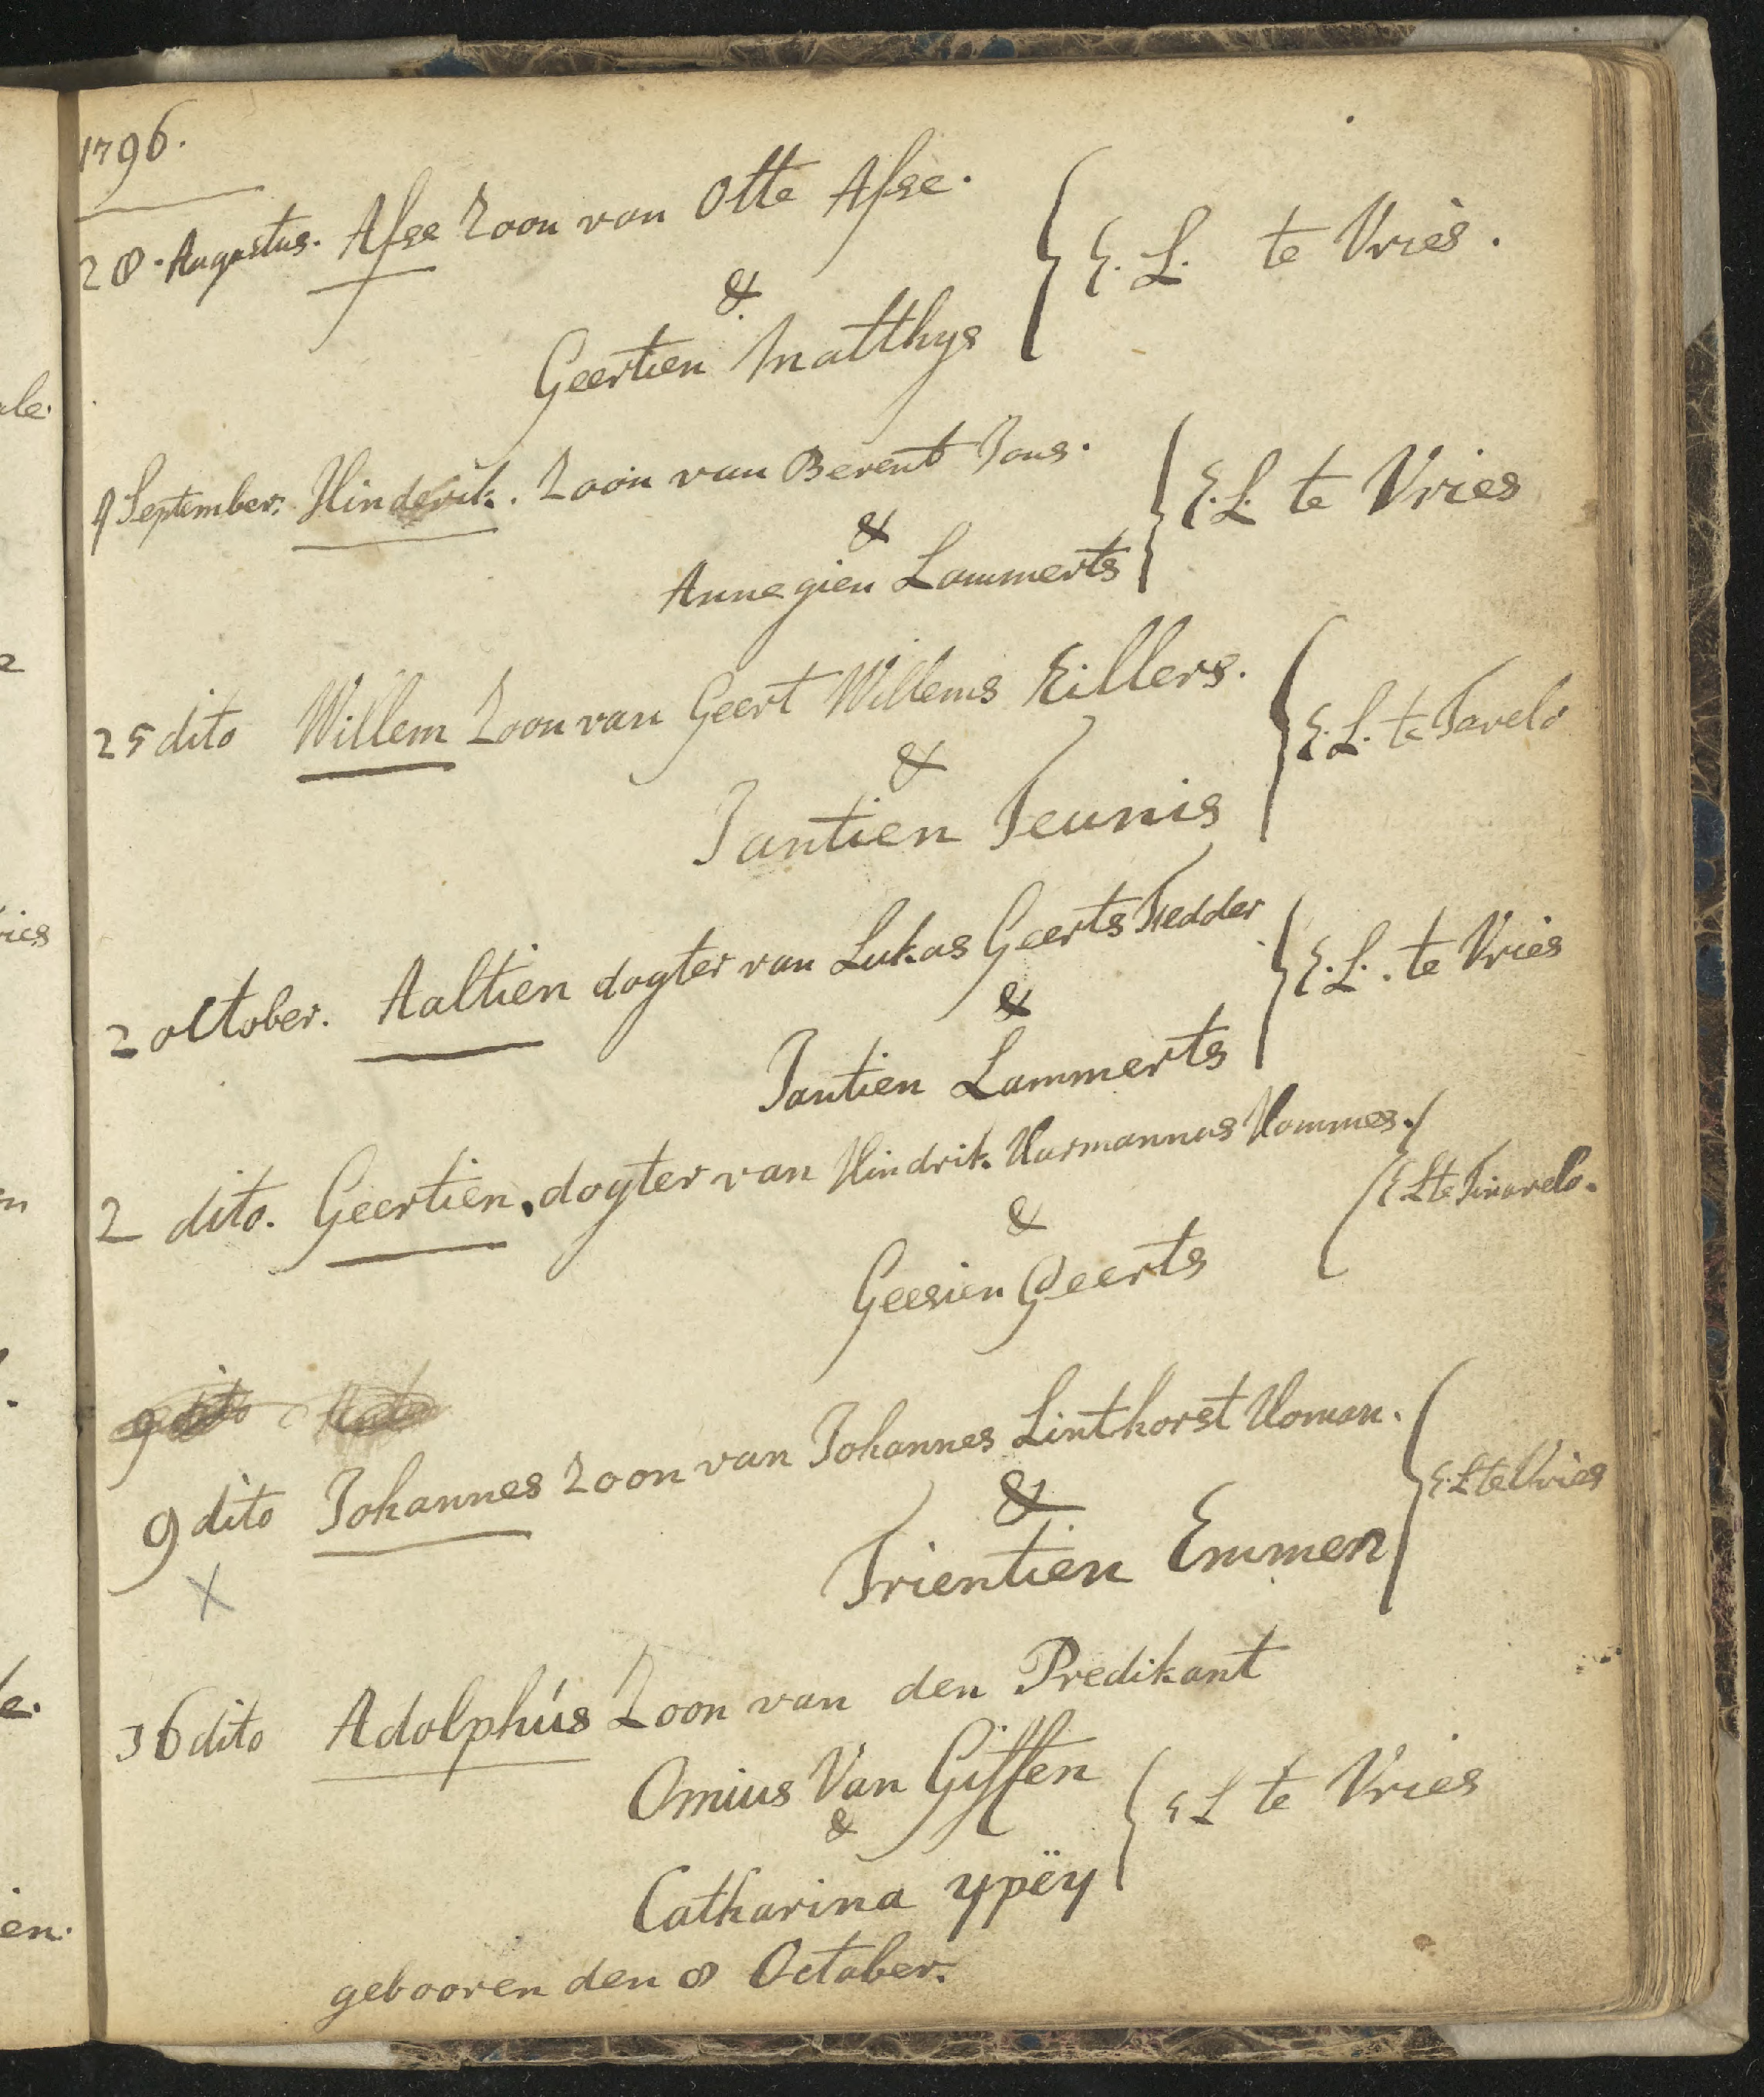 1796.
28. Augustus. Afse Zoon van Otte Afse. E. L. te Vries.
&
Geertien Matthys
4 September: Hinderik. Zoon van Berent Jans. E. L. te Vries
&
Annegien Lammerts
25 dito Willem Zoon van Geert Willems Eillers. E. L. te
&
Jantien Teunis
2 october. Aaltien dogter van Lukas Geerts Fledder E. L. te Vries
&
Jantien Lammerts
2 dito. Geertien, dogter van Hindrik Harmannus Hommes. E L te
&
Geesien Geerts
9 dito
9 dito Johannes Zoon van Johannes Linthorst Homan. E. L te Vries
X &
Trientien Emmen
16 dito Adolphús Zoon van den Predikant
Omius Van Giffen E L te Vries
&
Catharina ypëy
gebooren den 8 October.